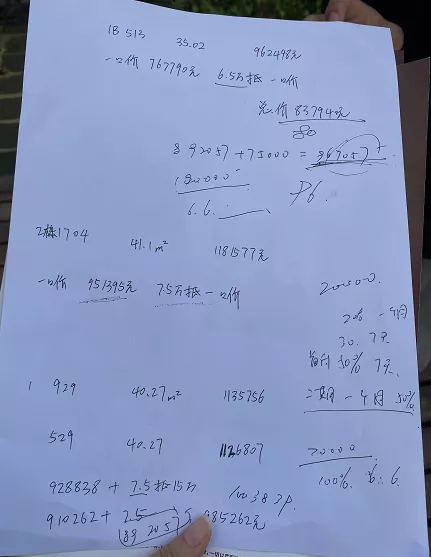 1B 513 35.02 962498元
一口价 767790元 6.5万抵一口价
总价 83794元
80
892057+75000=967057
180000
6.6.
P6.
2栋1704 41.1m² 1181577元
一口价 951395元 7.5万抵一口价
200000.
20% 一个月
30. 7天
首付 50% 7天
二期一个月 50%
1 929 40.27m² 1135756
529 40.27 1126807
20000
100% 6.6
928838 + 7.5抵15万
910262 + 25 985262元
892057